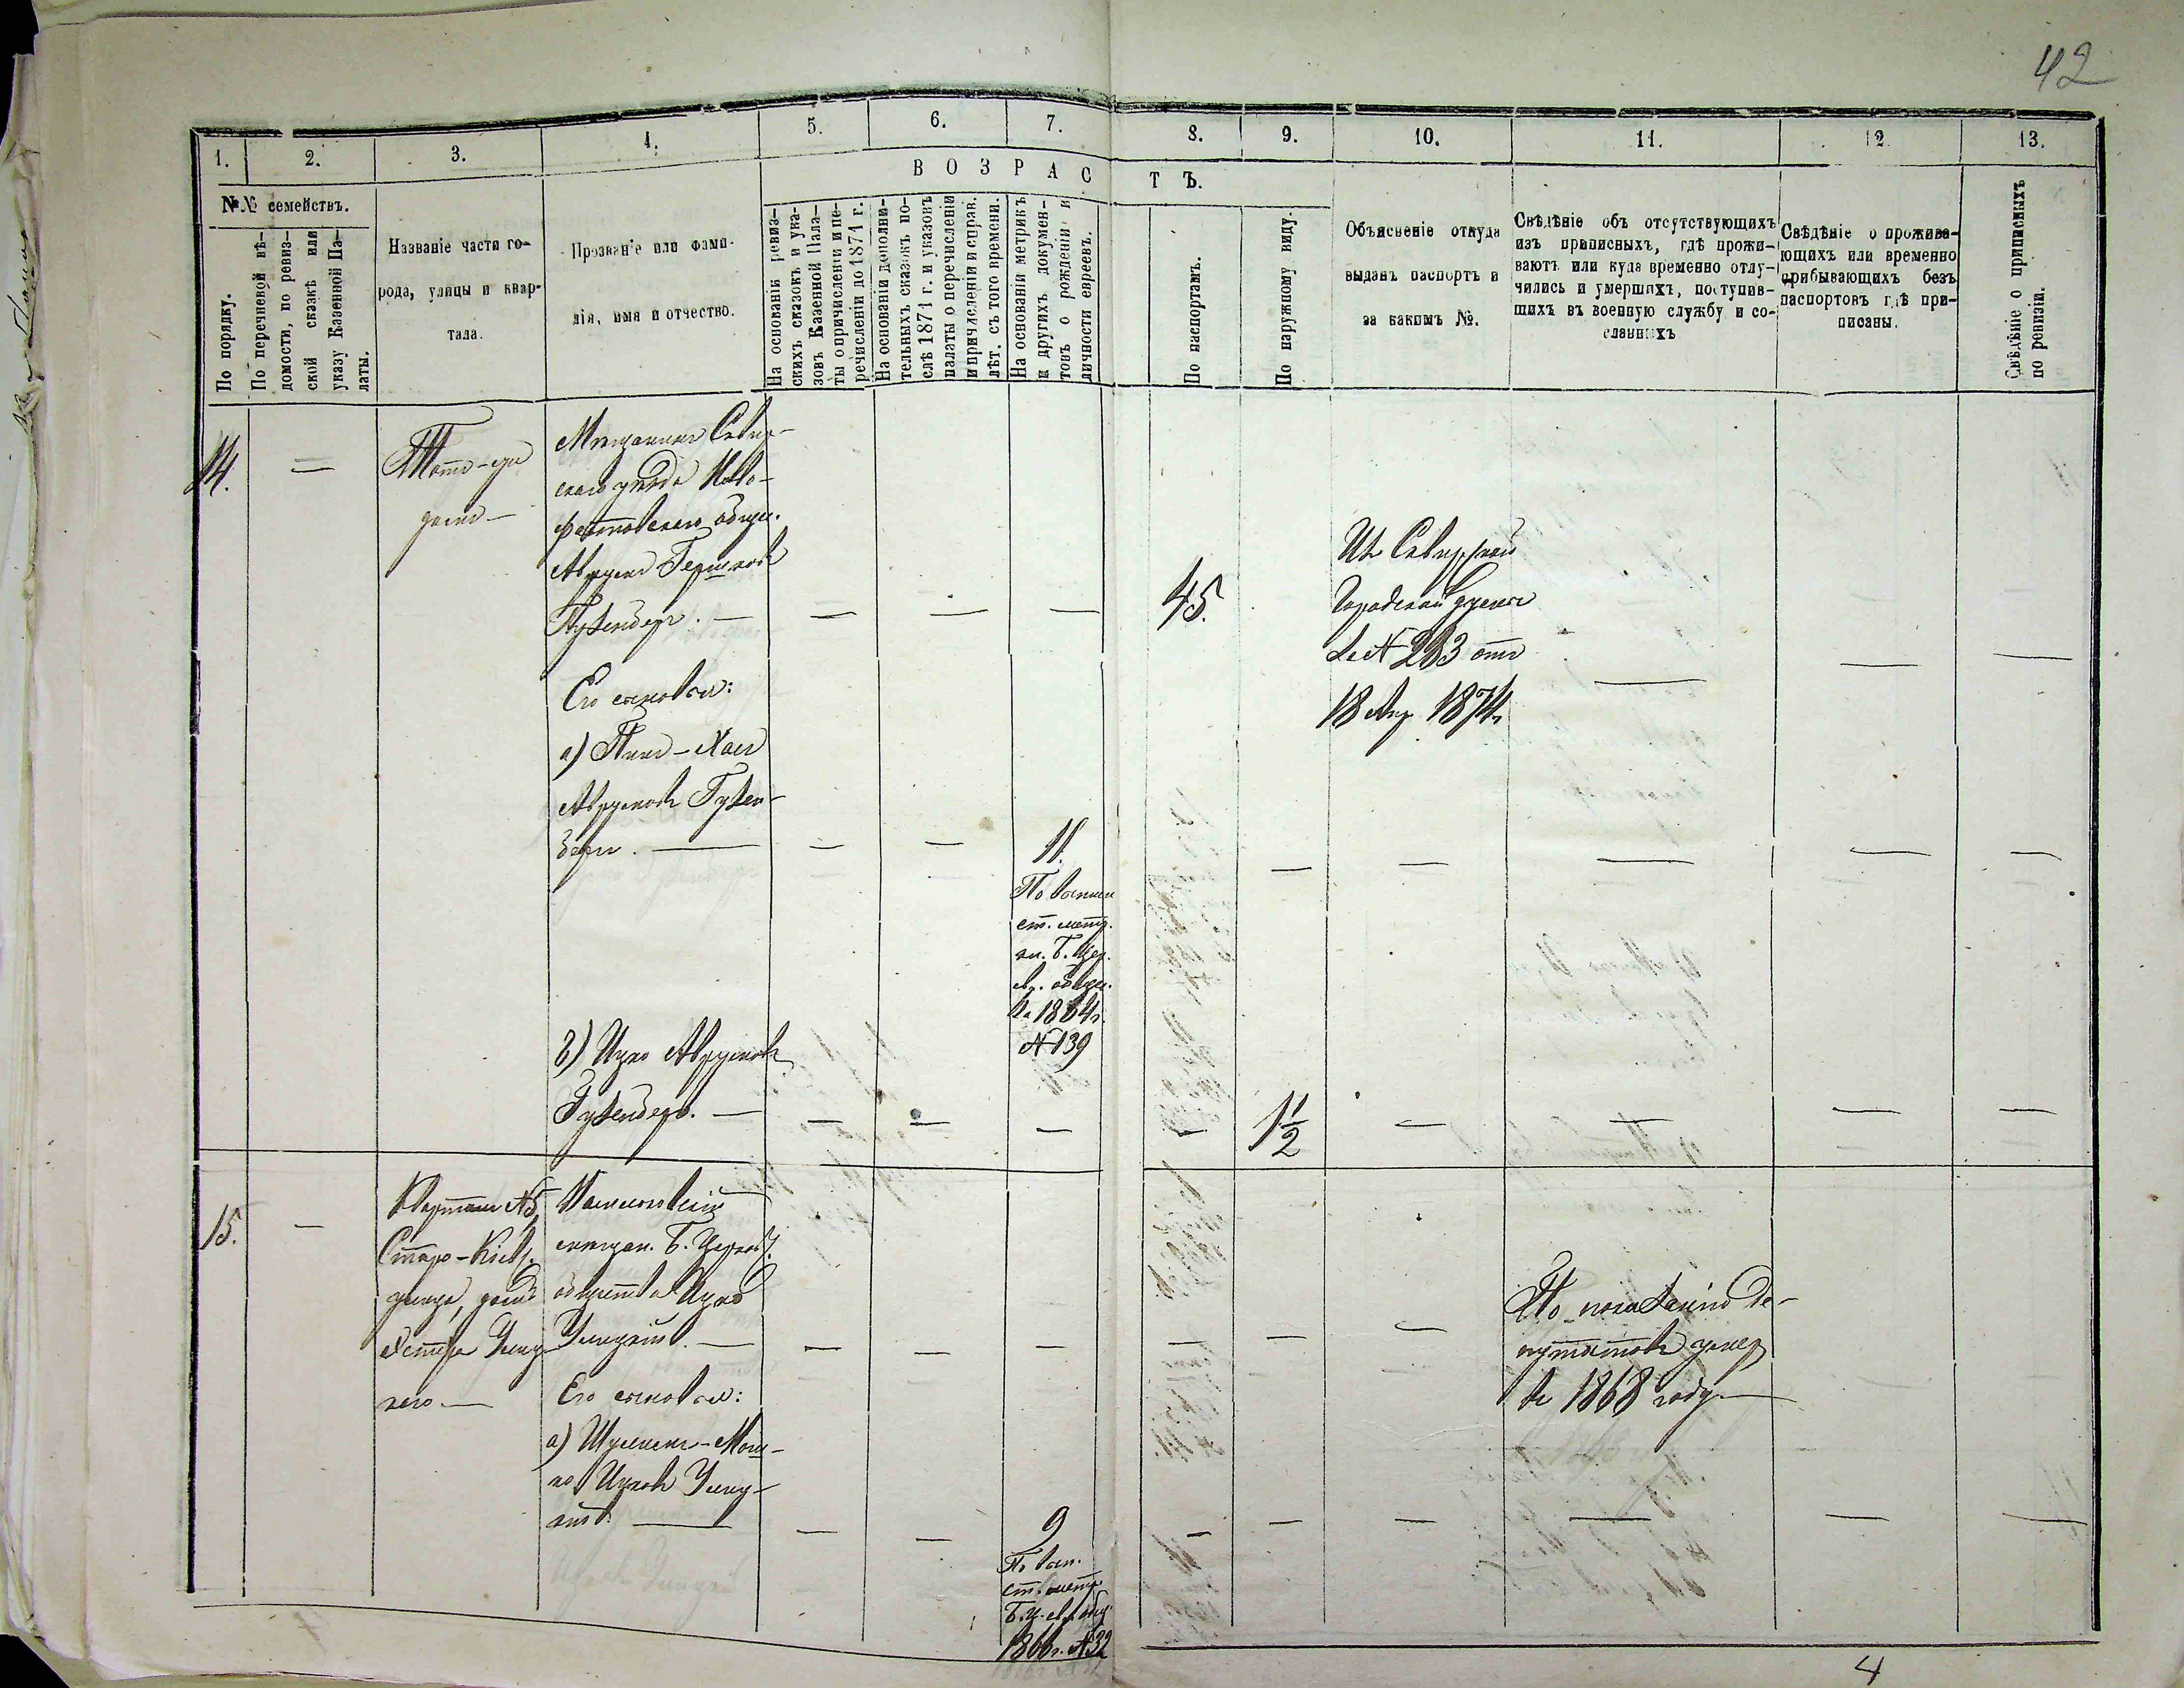 42
1. 2. 3. 4. 5. 6. 7. 8. 9. 10. 11. 12. 13.
В О З Р А С Т Ъ.
№№ семействъ.
По порядку.
По перечневой вѣ-
домости, по ревиз-
ской сказкѣ или
указу Казенной Па-
латы.
Названіе части го-
рода, улицы и квар-
тала.
Прозваніе или фами-
лія, имя и отчество.
На основаніи ревиз-
скихъ сказокъ и ука-
зовъ Казенной Пала-
ты о причисленіи и пе-
речисленіи до 1871 г.
На основаніи дополни-
тельныхъ сказокъ по-
слѣ 1871 г. и указовъ
палаты о перечисленіи
и причисленіи и справ.
лѣт. съ того времени.
На основаніи метрикъ
и другихъ докумен-
товъ о рожденіи и
личности евреевъ.
По паспортамъ.
По наружному виду.
Объясненіе откуда
выданъ паспортъ и
за какимъ №.
Свѣдѣніе объ отсутствующихъ
изъ приписныхъ, гдѣ прожи-
ваютъ или куда временно отлу-
чились и умершихъ, поступив-
шихъ въ военную службу и со-
сланныхъ
Свѣдѣніе о прожива-
ющихъ или временно
прибывающихъ безъ
паспортовъ гдѣ при-
писаны.
Свѣдѣніе о приписныхъ
по ревизіи.
14.
—
Тамъ-же
домъ —
Мѣщанинъ Сквир-
скаго уѣзда Ново-
фастовскаго общ.
Аврумъ Гершковъ
Гузенберг. —
45.
Изъ Сквирской
Городской думы
за № 283 отъ
18 Апр. 1874 г.
Его сыновья:
а)
Аврумовъ Гузен-
берг. —
11.
По выписи
ст. метр.
кн. Б. Цер.
евр. общ.
за 1864 г.
№ 139
б) Ицко Аврумовъ
Гузенберг. —
1 1/2
15.
—
Кварталъ № 5,
Старо-Кіев.
улица, домъ
мѣщан. Б. Церков.
общества Ицко
Его сыновья:
а) Шулимъ-Мош-
ко Ицковъ
По показанію де-
путатовъ умер
въ 1868 году —
9
По вып.
ст. метр.
Б. Ц. евр. общ.
1866 г. № 32
4